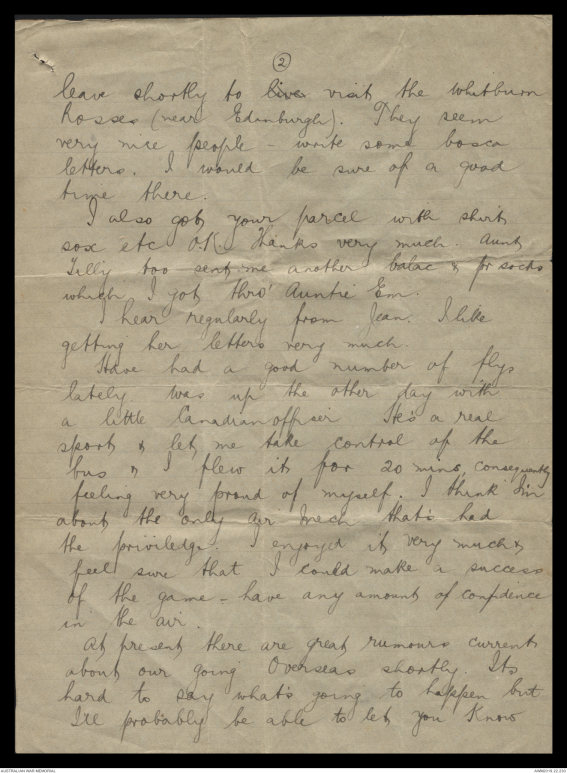 2
leave shortly to live visit the Whitburn
Rosses (near Edinburgh). They seem
very nice people - write some bosca
letters. I would be sure of a good
time there.
I also got your parcel with shirt,
sox etc O.K. Thanks very much. Aunt
Tilly too sent me another balac & pr socks
which I got thro' Auntie Em.
I hear regularly from Jean. I like
getting her letters very much.
Have had a good number of flys
lately was up the other day with
a little Canadian officer He's a real
sport & let me take control of the
bus & I flew it for 20 mins, consequently
feeling very proud of myself. I think I'm
about the only Air Mech that's had
the priviledge. I enjoyed it very much &
feel sure that I could make a success
of the game - have any amount of confidence
in the air.
At present there are great rumours current
about our going Overseas shortly. Its
hard to say what's going to happen but
I'll probably be able to let you know
AUSTRALIAN WAR MEMORIAL